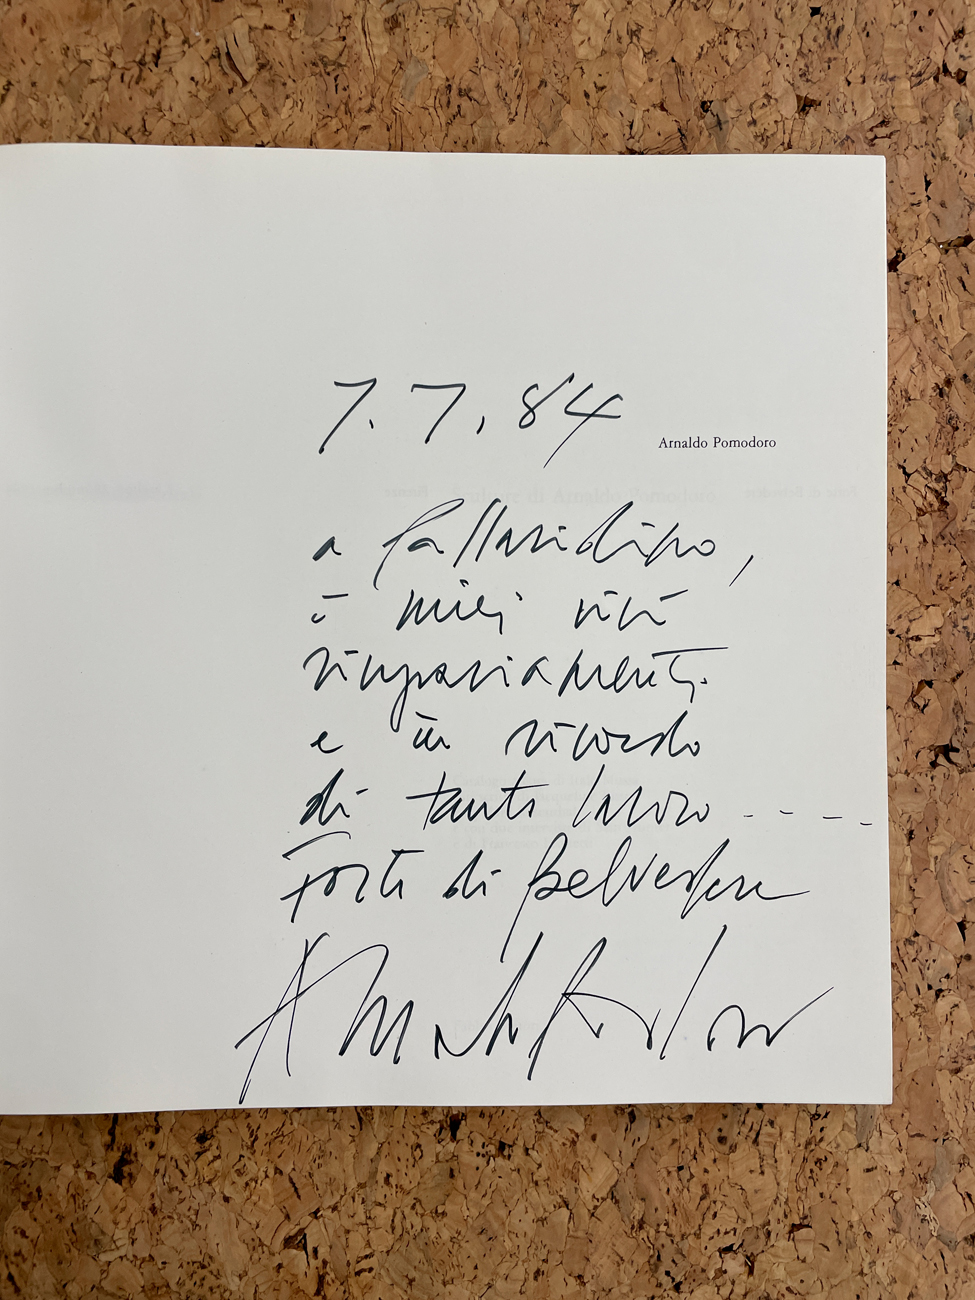 7.7.84
Arnaldo Pomodoro
a
i miei vivi
ringraziamenti
e in ricordo
di tanto lavoro .....
Forte di Belvedere
Arnaldo Pomodoro